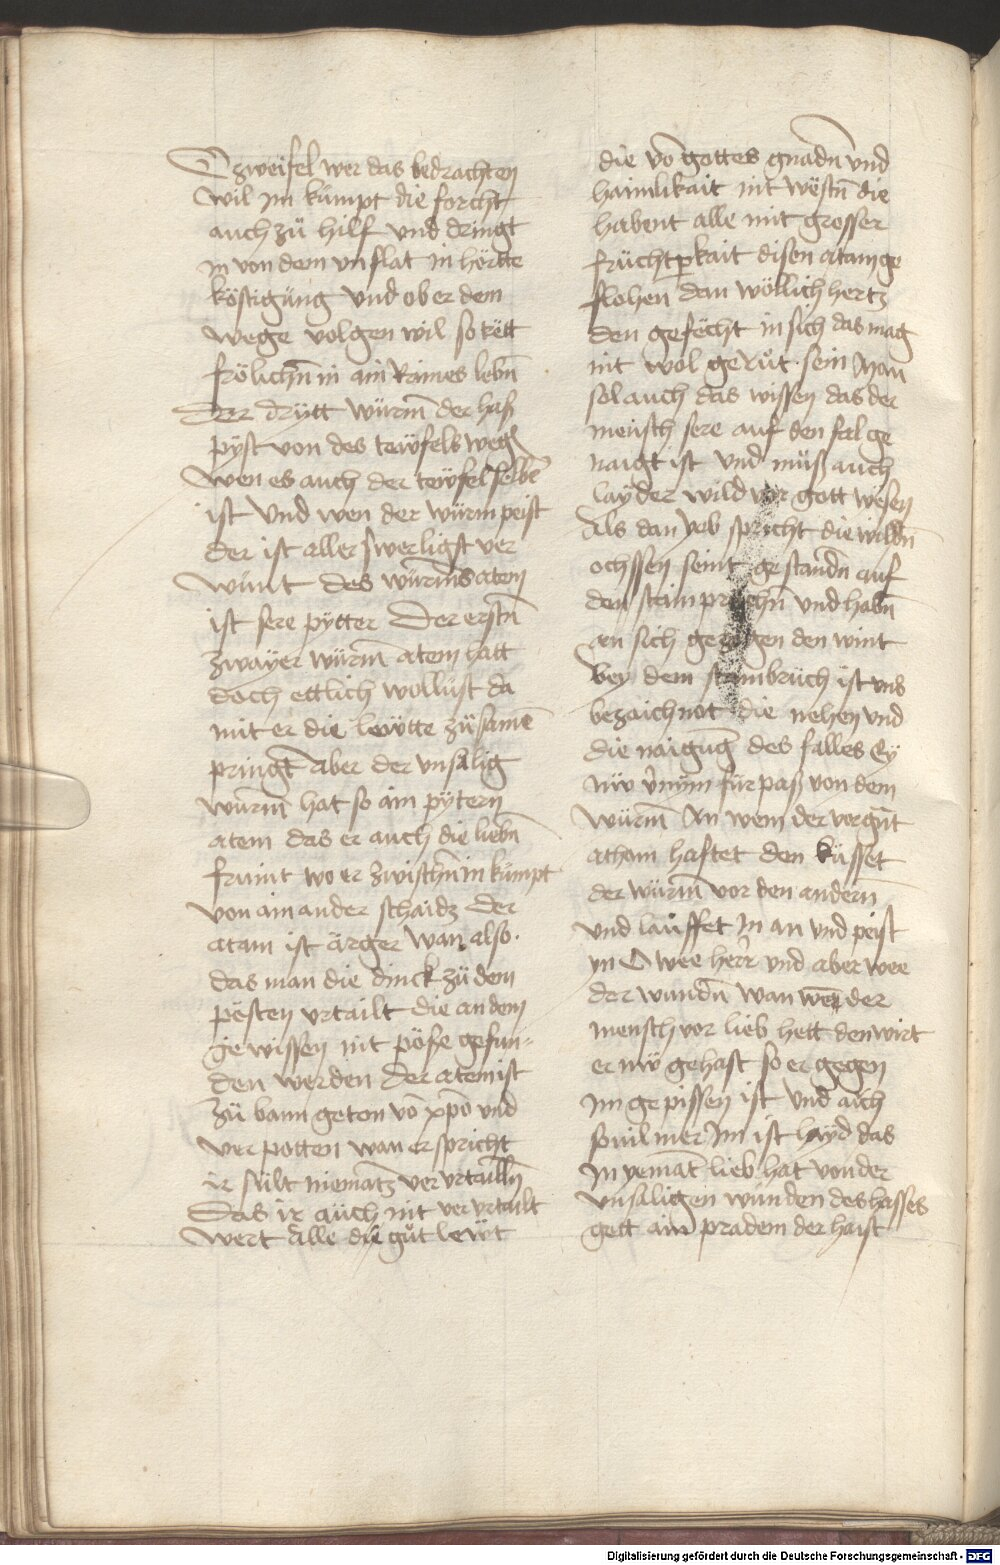 O zweifel wer das bedrachten
wil im kümpt die forcht
auch zü hilf und dringt
in von dem unflat in hörtte
köstigüng Und ob er dem
wege volgen wil so kett
frölichn̄ in ain Raines lebn̄
Der drÿtt würm̄ der haß
pÿst von des tewfels weg
Wen es auch der tewfel selber
ist Und wen der würm peist
der ist aller swerligst ver
wunt des würms atem
ist sere pÿtter Der erstn̄
zwaÿer würm̄ atem hatt
doch ettlich wollüst da
mit er die lewtte züsamē
pringt Aber der unsalig
würm̄ hat so ain pÿtern
atem das er auch die liebn̄
fruint wo er zwischn̄ in kümpt
von ainander schaidz Der
atam ist ärger wan also
das man die dinck zü dem
pösten urtailt die an dem
gewissen nit pöße gefun-
den werden Der atem ist
zü bann geton vō xp̄o und
verpotten wan er spricht
ir sült niematz verurtailn̄
Das ir aüch nit verurtailt
wert Alle die güt lewt
die vō gottes gnadn̄ und
haimlikait nit westn̄ die
habent alle mit grosser
früchtperkait disen atam ge
flohen dan wöllich hertz
den gefëcht in sich das mag
nit wol gerüt sein Man
sol auch das wissen das der
mensch sere auf den fal ge
naigt ist Und müß auch
layder wild vor gott wesen
Als dan yob spricht die wildn̄
ochssen seint gestandn̄ auf
den stainprüchn̄ und habn̄
an sich gezogen den wint
Bey dem stainbrüch ist uns
bezaichnot die nehen und
die naigūg des falles Ey
nw v̄nym fürpaß von dem
würm̄ An wem der vorgn̄t
athom haftet den küsset
der würm̄ vor den andern̄
und lauffet in an und peist
yn O wee herr und aber wee
der wundn̄ wan wen der
mensch vor lieb hett den wirt
er nw gehast so er gegen
im gepissen ist Und auch
sovil mer im ist layd das
in yemāt lieb hat von der
unsaligen wunden des hasses
gett ain pradem der haist
Digitalisierung gefördert durch die Deutsche Forschungsgemeinschaft - DFG